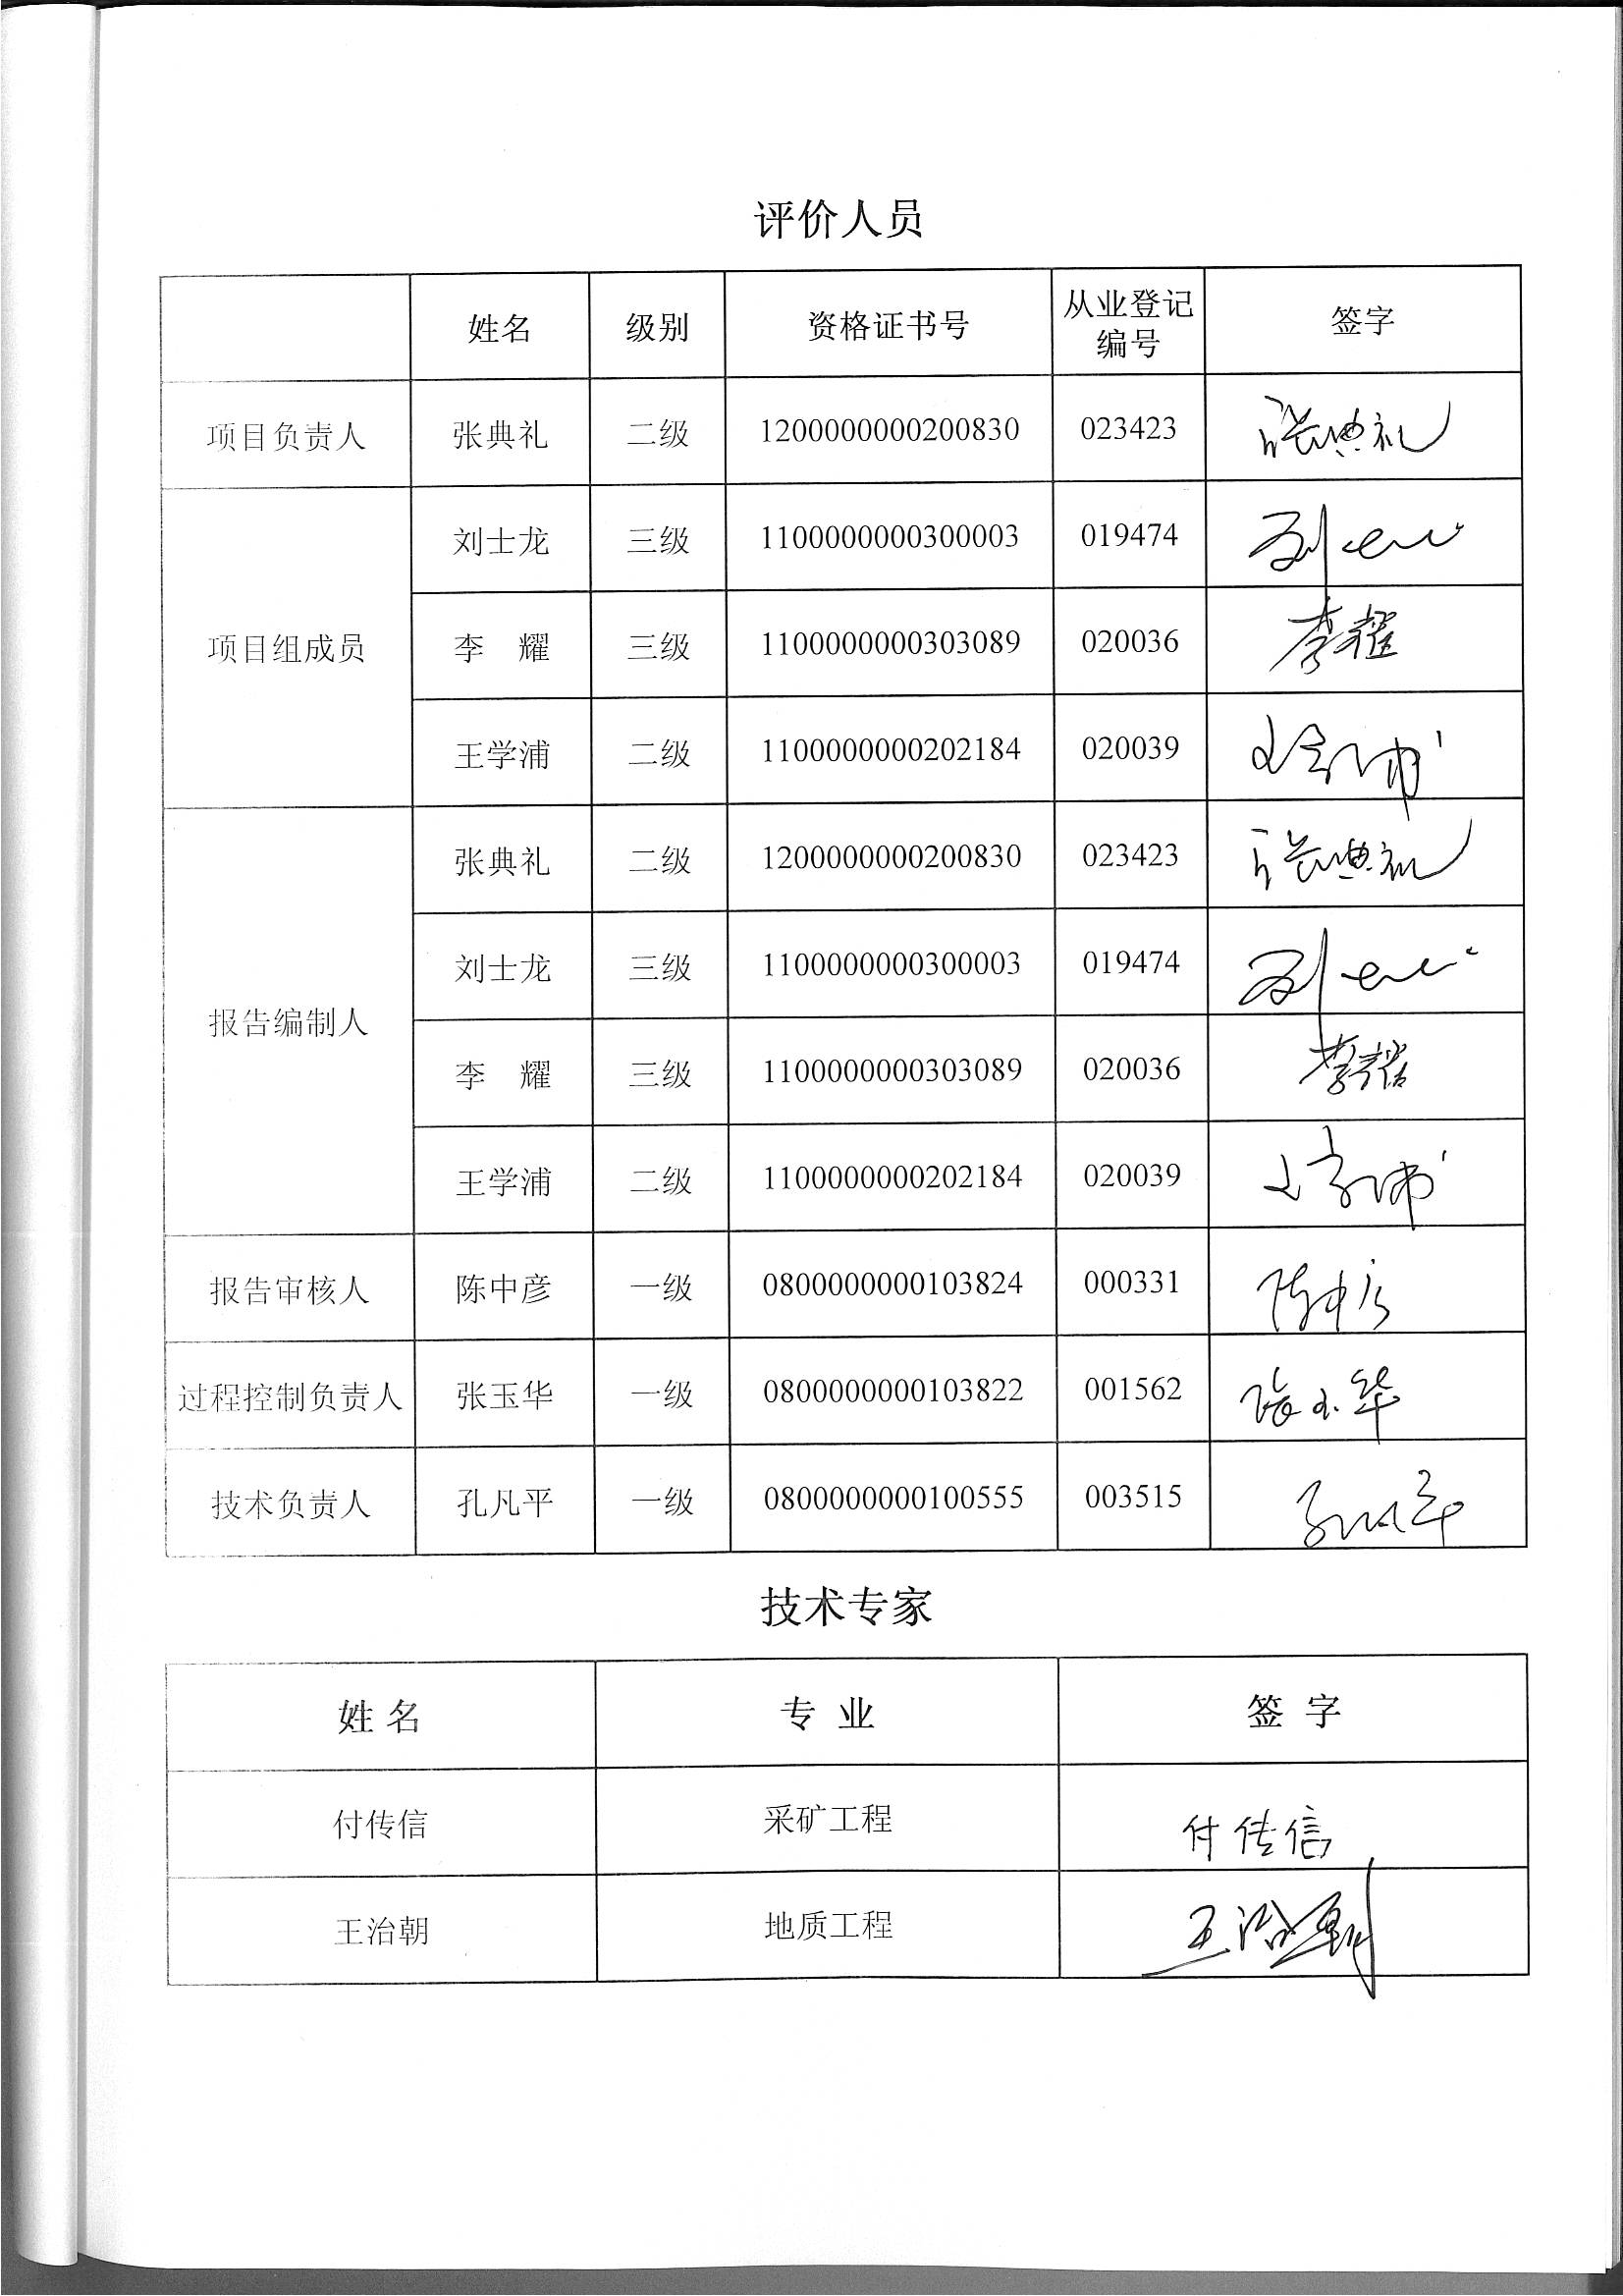 评价人员
姓名 级别 资格证书号 从业登记编号 签字
项目负责人 张典礼 二级 1200000000200830 023423 张典礼
项目组成员 刘士龙 三级 1100000000300003 019474
李 耀 三级 1100000000303089 020036 李耀
王学浦 二级 1100000000202184 020039 王学浦
报告编制人 张典礼 二级 1200000000200830 023423 张典礼
刘士龙 三级 1100000000300003 019474
李 耀 三级 1100000000303089 020036 李耀
王学浦 二级 1100000000202184 020039 王学浦
报告审核人 陈中彦 一级 0800000000103824 000331 陈中彦
过程控制负责人 张玉华 一级 0800000000103822 001562 张玉华
技术负责人 孔凡平 一级 0800000000100555 003515 孔凡平
技术专家
姓名 专业 签字
付传信 采矿工程 付传信
王治朝 地质工程 王治朝